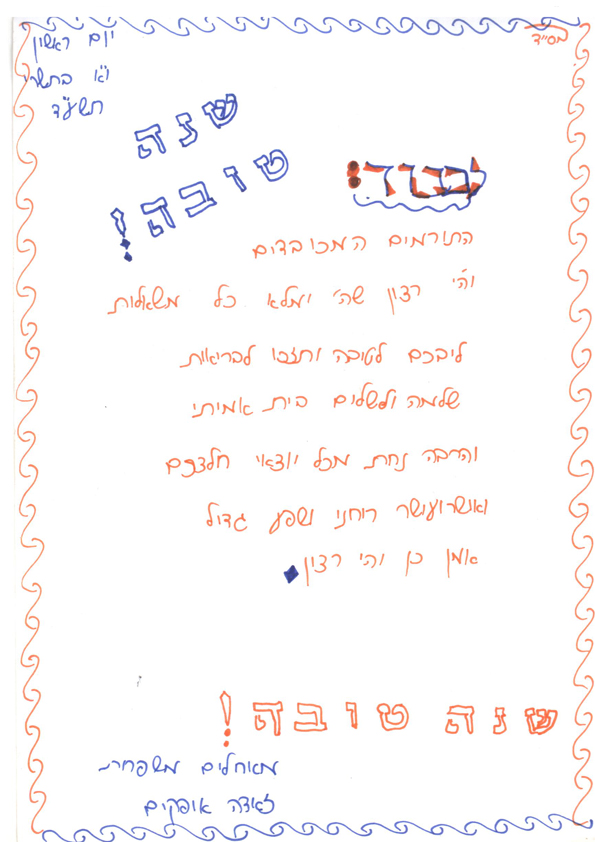 בס״ד
יום ראשון
י״א בתשרי
תשע״ד
שנה
טובה!
לכבוד:
התורמים המכובדים
ויה״י רצון שה׳ ימלא כל משאלות
ליבכם לטובה ותזכו לבריאות
שלמה ולשלום בית אמיתי
והרבה נחת מכל יוצאי חלצכם
ואושר ועושר רוחני ושפע גדול
אמן כן יהי רצון
שנה טובה!
מאחלים משפחת
אופקים